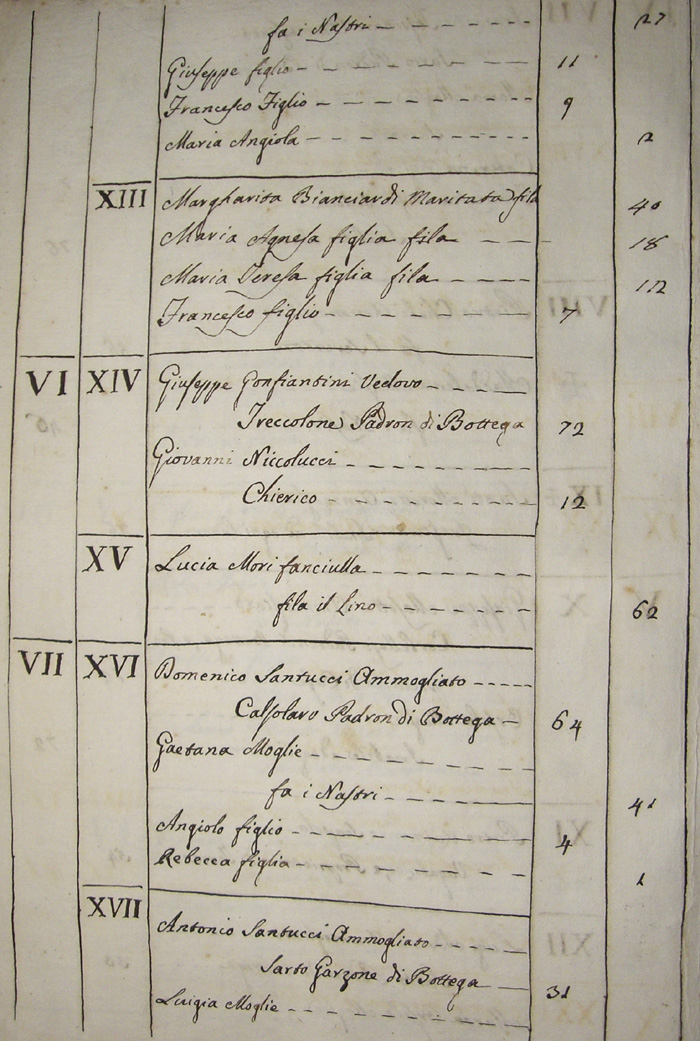 fa i Nastri 27
Giuseppe figlio 11
Francesco Figlio 9
Maria Angiola 2
XIII Margharita Bianciardi Maritata fila 40
Maria Agnesa figlia fila 18
Maria Teresa figlia fila 12
Francesco figlio 7
VI XIV Giuseppe Gonfiantini Vedovo
Treccolone Padron di Bottega 72
Giovanni Niccolucci
Chierico 12
XV Lucia Mori fanciulla
fila il Lino 62
VII XVI Domenico Santucci Ammogliato
Calsolaro Padron di Bottega 64
Gaetana Moglie
fa i Nastri 41
Angiolo figlio 4
Rebecca figlia 1
XVII Antonio Santucci Ammogliato
Sarto Garzone di Bottega 31
Luigia Moglie